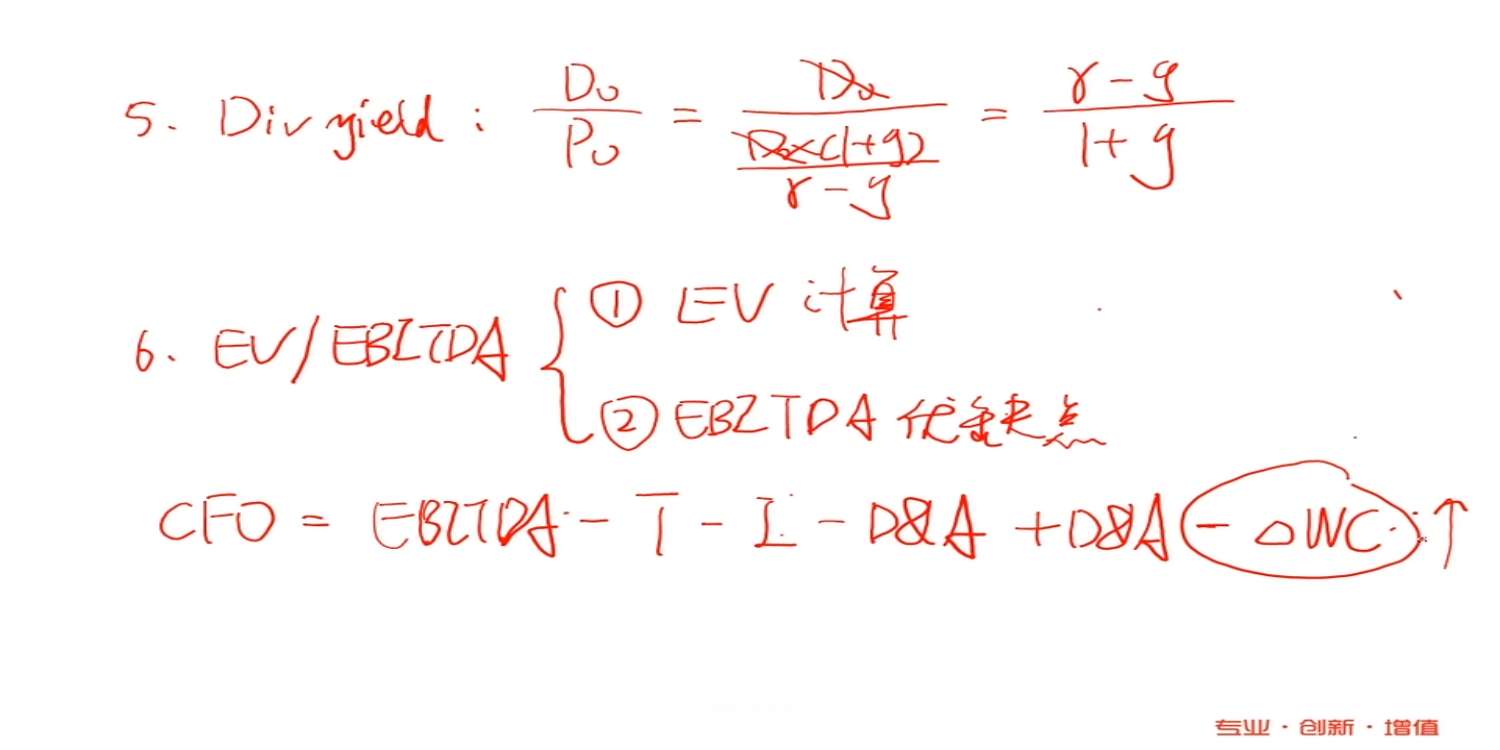 5. Div yield : D₀/P₀ = D₀/(D₀×(1+g)/(r-g)) = (r-g)/(1+g)
6. EV/EBITDA { ① EV 计算
② EBITDA 优缺点
CFO = EBITDA - T - I - D&A + D&A - △WC ↑
专业·创新·增值